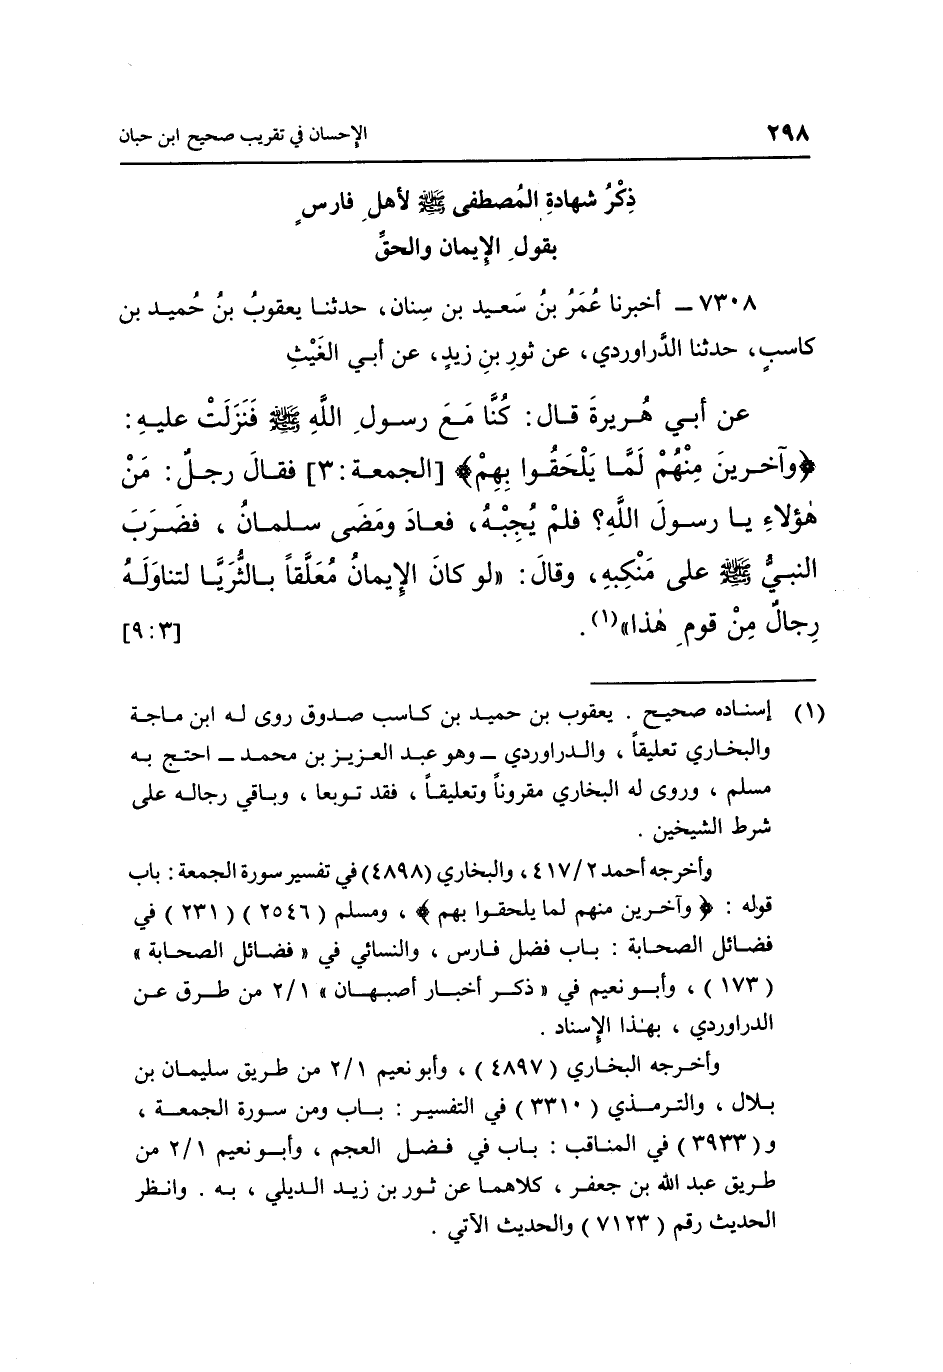 ٢٩٨ الإحسان في تقريب صحيح ابن حبان
ذِكْرُ شهادةِ المُصطفى ﷺ لأهلِ فارسٍ
بقولِ الإيمان والحقِّ
٧٣٠٨ ــ أخبرنا عُمَرُ بنُ سَعيد بن سِنان، حدثنا يعقوبُ بنُ حُميد بن
كاسبٍ، حدثنا الدَّراوردي، عن ثورِ بنِ زيدٍ، عن أبي الغَيْثِ
عن أبي هُريرةَ قال: كُنَّا مَعَ رسولِ اللَّهِ ﷺ فَنَزَلَتْ عليهِ:
﴿وآخرينَ مِنْهُمْ لَمَّا يَلْحَقُوا بِهِمْ﴾ [الجمعة: ٣] فقالَ رجلٌ: مَنْ
هٰؤلاءِ يا رسولَ اللَّهِ؟ فلمْ يُجِبْهُ، فعادَ ومَضَى سلمانُ، فضَرَبَ
النبيُّ ﷺ على مَنْكِبِهِ، وقالَ: «لو كانَ الإيمانُ مُعَلَّقاً بالثُّرَيَّا لتناوَلَهُ
رِجالٌ مِنْ قومِ هٰذا»(١). [٩:٣]
(١) إسناده صحيح . يعقوب بن حميد بن كاسب صدوق روى له ابن ماجة
والبخاري تعليقاً ، والدراوردي ــ وهو عبد العزيز بن محمد ــ احتج به
مسلم ، وروى له البخاري مقروناً وتعليقاً ، فقد توبعا ، وباقي رجاله على
شرط الشيخين .
وأخرجه أحمد ٤١٧/٢، والبخاري (٤٨٩٨) في تفسير سورة الجمعة: باب
قوله : ﴿ وآخرين منهم لما يلحقوا بهم ﴾ ، ومسلم ( ٢٥٤٦ ) ( ٢٣١ ) في
فضائل الصحابة : باب فضل فارس ، والنسائي في « فضائل الصحابة »
( ١٧٣ ) ، وأبو نعيم في « ذكر أخبار أصبهان » ٢/١ من طرق عن
الدراوردي ، بهٰذا الإسناد .
وأخرجه البخاري ( ٤٨٩٧ ) ، وأبو نعيم ٢/١ من طريق سليمان بن
بلال ، والترمذي ( ٣٣١٠ ) في التفسير : باب ومن سورة الجمعة ،
و ( ٣٩٣٣ ) في المناقب : باب في فضل العجم ، وأبو نعيم ٢/١ من
طريق عبد الله بن جعفر ، كلاهما عن ثور بن زيد الديلي ، به . وانظر
الحديث رقم ( ٧١٢٣ ) والحديث الآتي .